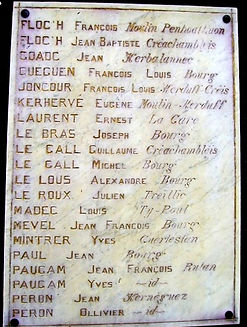 FLOC'H FRANÇOIS Moulin Penhoat-huon
FLOC'H JEAN BAPTISTE Créachambleis
GOADC JEAN Kerbalannec
GUEGUEN FRANÇOIS LOUIS Bourg
JONCOUR FRANÇOIS LOUIS Kerduff Créis
KERHERVÉ EUGÈNE Moulin-Kerduff
LAURENT ERNEST La Gare
LE BRAS JOSEPH Bourg
LE GALL GUILLAUME Créachambleis
LE GALL MICHEL Bourg
LE LOUS ALEXANDRE Bourg
LE ROUX JULIEN
MADEC LOUIS Ty-Poul
MEVEL JEAN FRANÇOIS Bourg
MINTRER YVES Guerlesien
PAUL JEAN Bourg
PAUGAM JEAN FRANÇOIS
PAUGAM YVES —id—
PERON JEAN Kerneguez
PERON OLLIVIER —id—